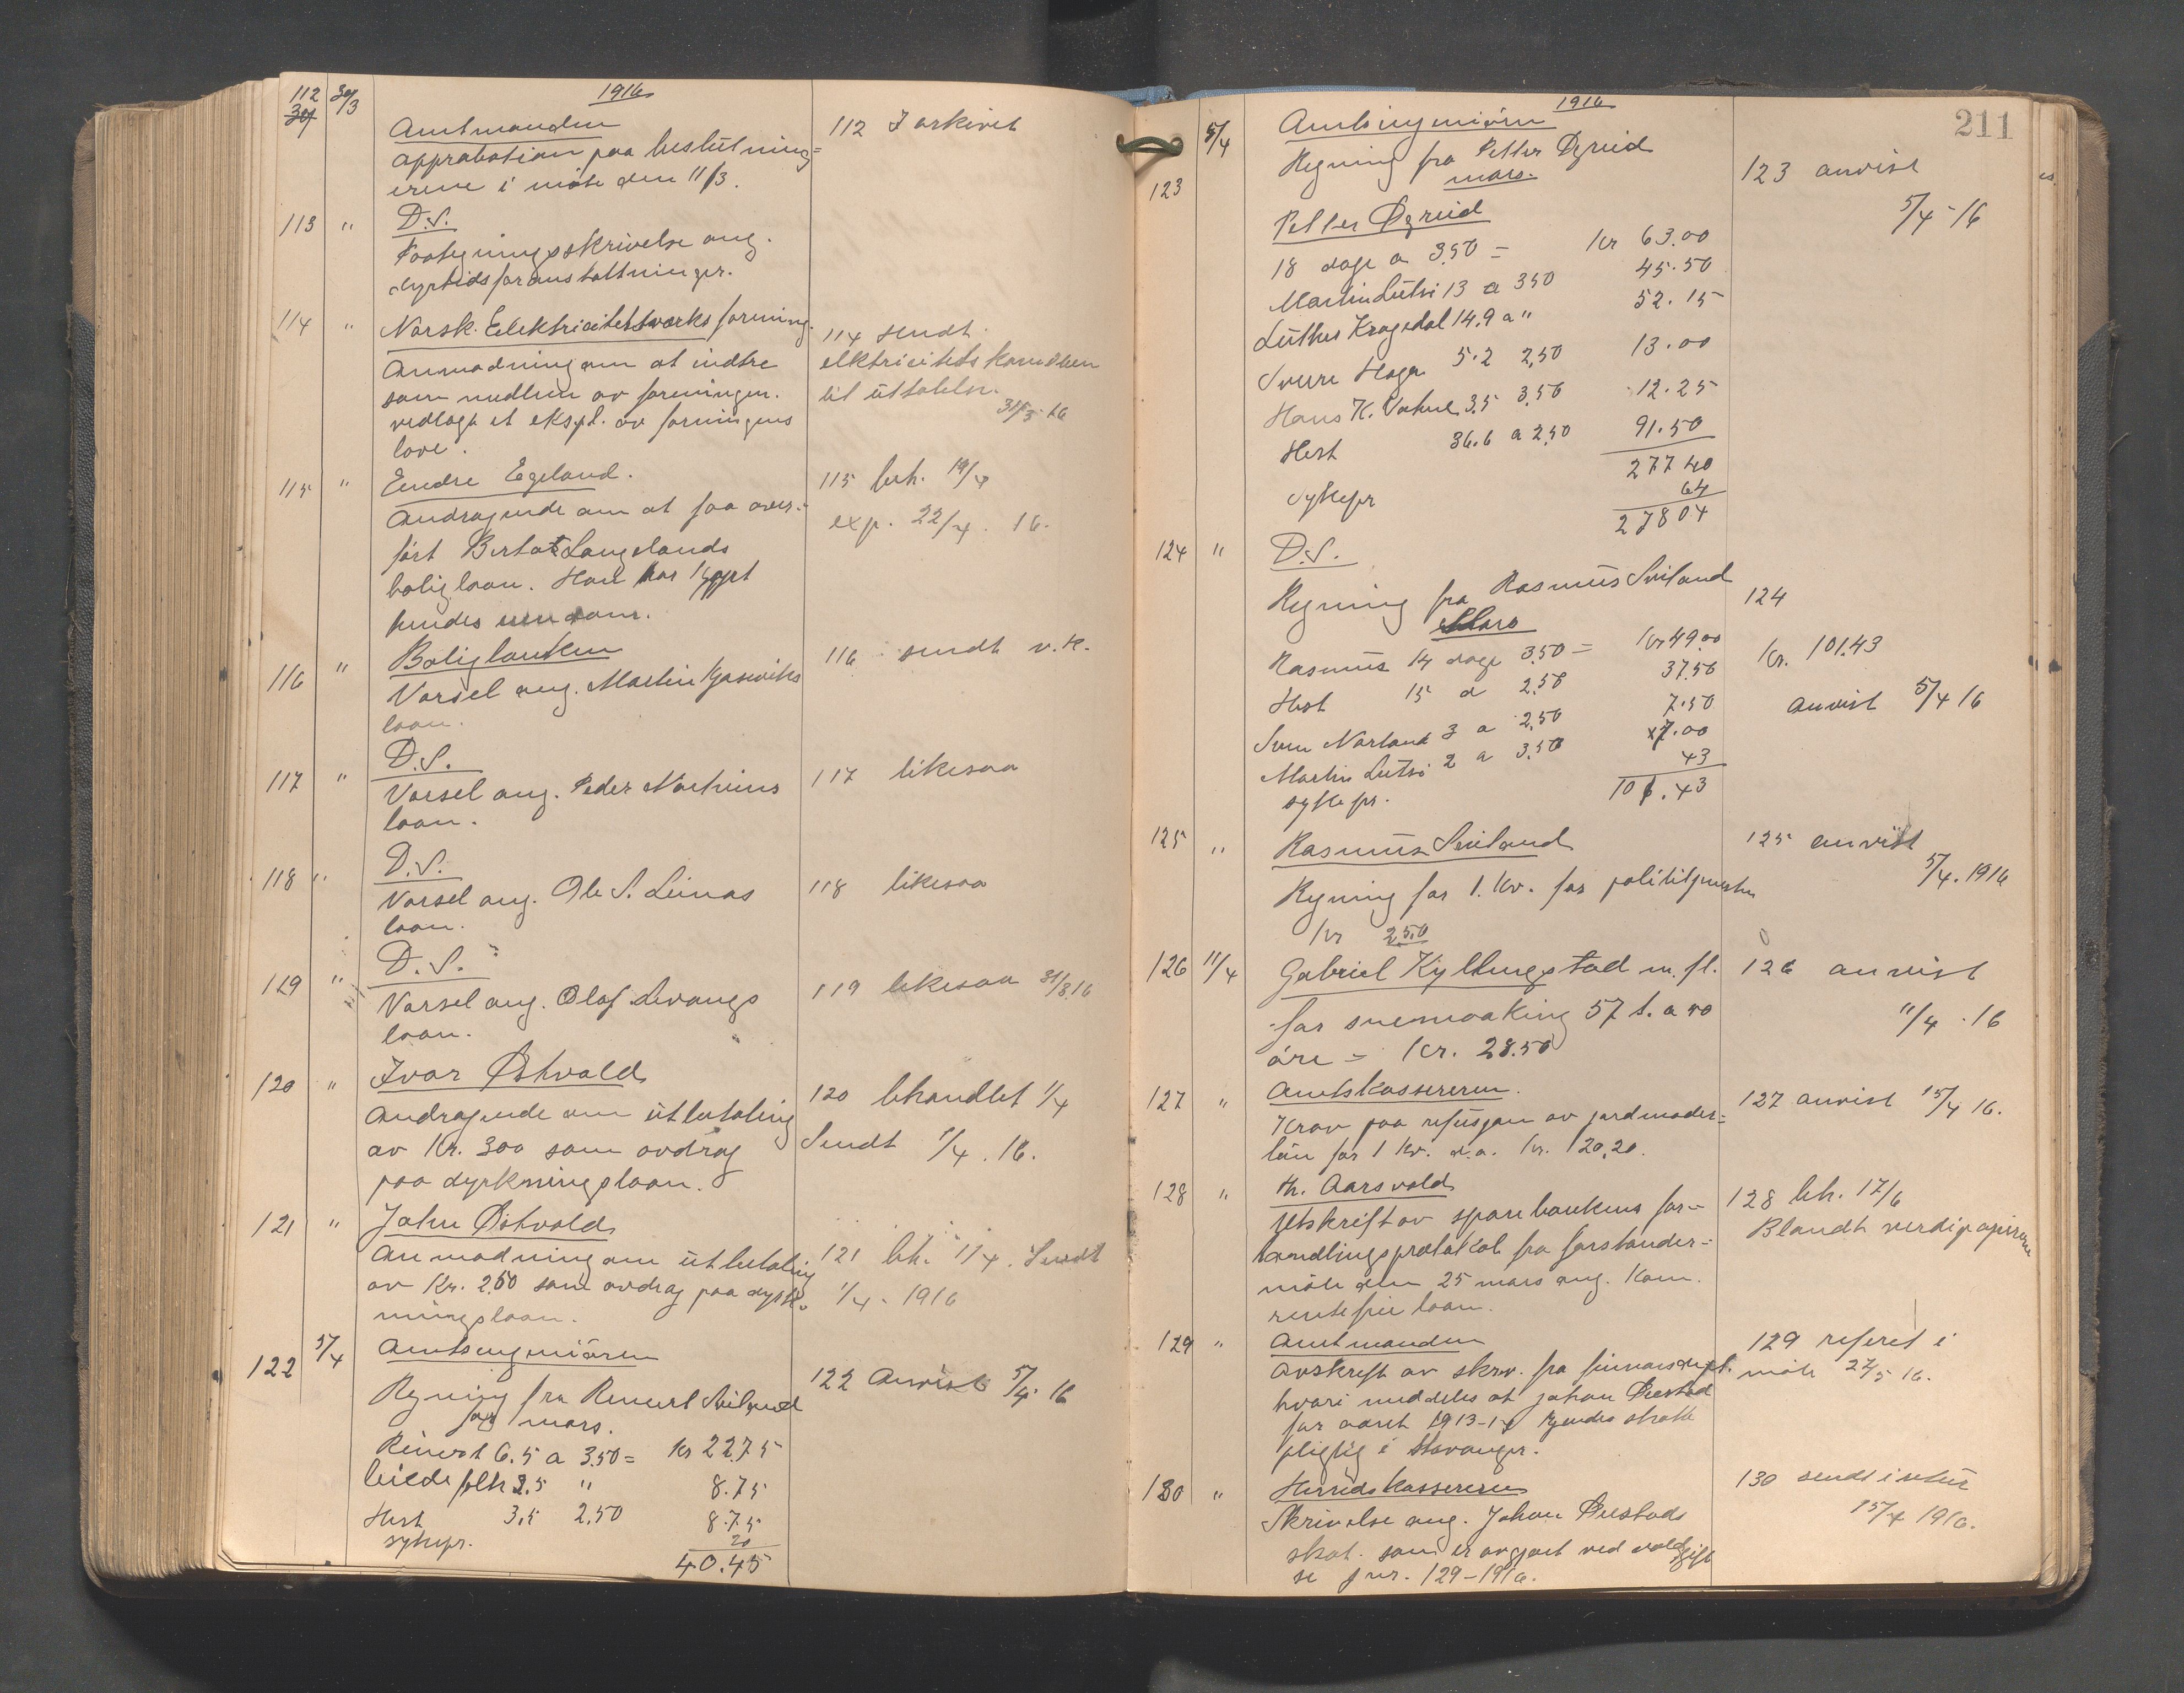 1916
112 30/3 Amtmanden
30/
approbation paa beslutning=
erne i møte den 11/3.
112 I arkivet
113 " D.S.
Paategningsskrivelse ang.
dyrtidsforanstaltninger.
114 " Norsk Elektricitetsverks forening.
Anmodning om at indtre
som medlem av foreningen.
vedlagt et ekspl. av foreningens
love.
114 sendt
elktricitetskomiteen
til uttalelse.
31/3 16
115 " Endre Egeland.
Andragende om at faa over-
ført Berta Langelands
boliglaan. Han har kjøpt
hendes eiendom.
115 beh. 19/4
exp. 22/4. 16.
116 " Boligbanken
Varsel ang. Martin Gjasvikes
laan.
116 sendt v.k.
117 " D.S.
Varsel ang. Peder
laan.
117 likesaa
118 " D.S.
Varsel ang. Ole S. Leinas
laan.
118 likesaa
119 " D.S.
Varsel ang. Olaf Levangs
laan.
119 likesaa 31/3.16
120 " Ivar Østvold
Andragende om utbetaling
av Kr. 300 som avdrag
paa dyrkningslaan.
120 behandlet 1/4
Sendt 1/4. 16.
121 " John Østvold
Anmodning om utbetaling
av Kr. 250 som avdrag paa dyrk-
ningslaan.
121 beh. 1/4. Sendt
1/4. 1916
122 5/4 Amtsingeniøren
Regning fra Reinert Sviland
for mars.
Reinert 6.5 a 3.50 = kr 22.75
leiede folk 2.5 " 8.75
Hest 3,5 2,50 8.75
sykepr. 20
40.45
122 Anvist 5/4. 16
1916
211
5/4 Amtsingeniøren
123 Regning fra Petter Øgreid
mars.
Petter Øgreid
18 dage a 3.50 = Kr 63.00
Martin Lutsi 13 a 350 45.50
Luther Kragedal 14.9 a " 52.15
Sverre Haga 5.2 2,50 13.00
Hans K. 3,5 3,50 12.25
Hest 36.6 a 2,50 91.50
277 40
Sykepr 64
278 04
123 anvist
5/4 - 16
124 " D.S.
Regning fra Rasmus Sviland
Mars
Rasmus 14 dage 3.50 = Kr 49.00
Hest 15 a 2,50 37.50
Sven Norland 3 a 2,50 7.50
Martin Lutsi 2 a 3,50 7.00
sykepr. 43
101.43
124
Kr. 101.43
anvist 5/4 16
125 " Rasmus Sviland
Regning for 1. kv. for polititjeneste
kr 250
125 anvist
5/4. 1916
126 11/4 Gabriel Kyllingstad m. fl.
for snemoaking 57 t. a 50
øre = Kr. 28.50
126 anvist
11/4. 16
127 " Amtskassereren.
Krav paa refusjon av jordmoder=
løn for 1 kv. d.a. kr. 120,20.
127 anvist 15/4 16.
128 " Th. Aarsvold
Utskrift av sparebankens for-
handlingsprotokol fra forstander-
møte den 25 mars ang. kom.
rentefrie laan.
128 beh. 17/6
Blandt verdipapirene
129 " Amtmanden
Avskrift av skriv. fra finansdept.
hvori meddeles at Johan Øvestad
for aaret 1913-14 kjendes skatte
pligtig i Stavanger.
129 referet i
møte 27/5 16.
130 " Herredskassereren
Skrivelse ang. Johan Øvestads
skat. som er avgjort ved voldgift
se jnr. 129-1916.
130 sendt i retur
15/4 1916.